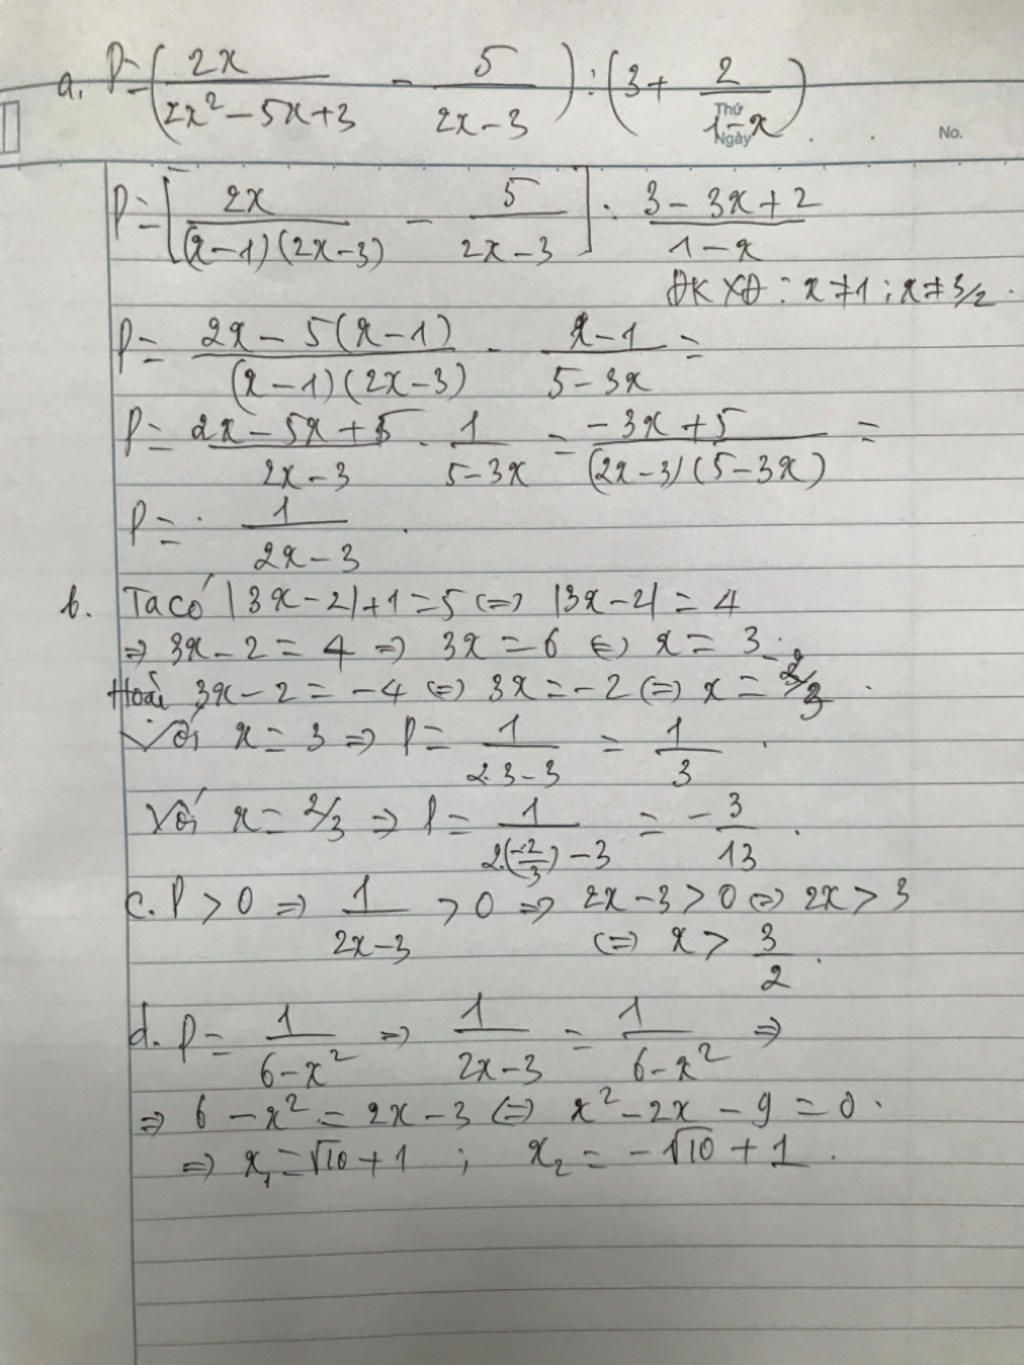 a. P=(2x/(2x²-5x+3) - 5/(2x-3)) : (3+ 2/(1-x))
Thứ
Ngày
No.
P=[2x/((x-1)(2x-3)) - 5/(2x-3)] : (3-3x+2)/(1-x)
ĐKXĐ: x≠1; x≠3/2.
P= (2x-5(x-1))/((x-1)(2x-3)) · (x-1)/(5-3x) =
P= (2x-5x+5)/(2x-3) · 1/(5-3x) = (-3x+5)/((2x-3)(5-3x)) =
P= 1/(2x-3).
b. Ta có |3x-2|+1=5 (=) |3x-2| = 4
=> 3x-2 = 4 => 3x = 6 (=) x = 3.
Hoặc 3x-2 = -4 (=) 3x = -2 (=) x = -2/3.
Với x = 3 => P = 1/(2.3-3) = 1/3.
Với x = 2/3 => P = 1/(2.(-2/3)-3) = -3/13.
c. P>0 => 1/(2x-3) >0 => 2x-3>0 (=) 2x>3
(=) x > 3/2.
d. P= 1/(6-x²) => 1/(2x-3) = 1/(6-x²) =>
=> 6-x² = 2x-3 (=) x²-2x-9=0.
=> x₁=√10+1 ; x₂=-√10+1.